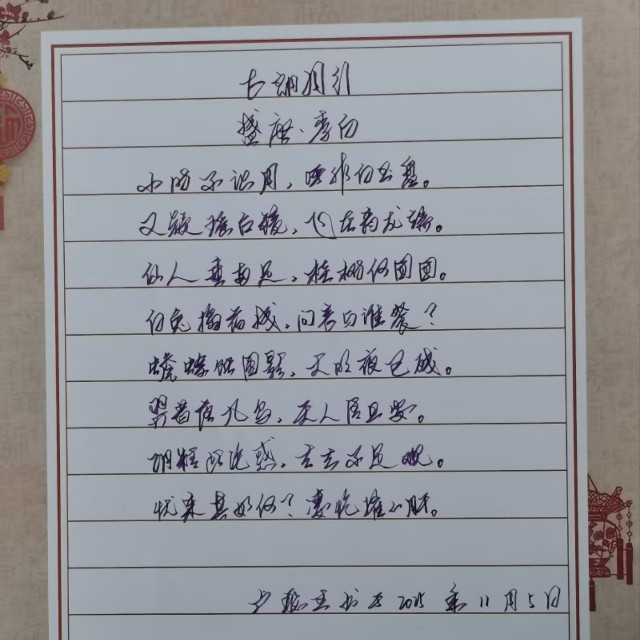 古朗月行
盛唐·李白
小时不识月,呼作白玉盘。
又疑瑶台镜,飞在青云端。
仙人垂两足,桂树何团团。
白兔捣药成,问言与谁餐?
蟾蜍蚀圆影,大明夜已残。
羿昔落九乌,天人清且安。
阴精此沦惑,去去不足观。
忧来其如何?凄怆摧心肝。
书于2025年11月5日